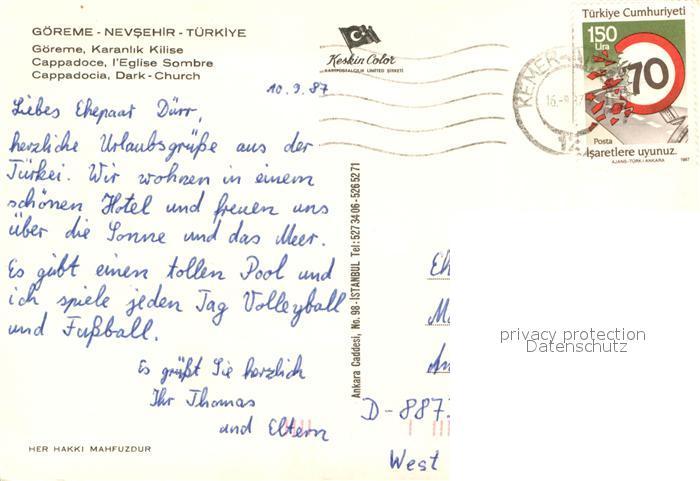 GÖREME - NEVŞEHİR - TÜRKİYE
Göreme, Karanlık Kilise
Cappadoce, l'Eglise Sombre
Cappadocia, Dark - Church
Keskin Color
KARTPOSTALCILIK LIMITED ŞİRKETİ
Türkiye Cumhuriyeti
150
Lira
70
Posta
İşaretlere uyunuz.
AJANS-TÜRK/ANKARA 1987
KEMER-
16.-9.87
10.9.87
Liebes Ehepaar Dürr,
herzliche Urlaubsgrüße aus der
Türkei. Wir wohnen in einem
schönen Hotel und freuen uns
über die Sonne und das Meer.
Es gibt einen tollen Pool und
ich spiele jeden Tag Volleyball
und Fußball.
Es grüßt Sie herzlich
Ihr Thomas
und Eltern
HER HAKKI MAHFUZDUR
Ankara Caddesi, No. 98 - İSTANBUL Tel: 527 34 06 - 526 52 71
Eh
D-887
West
privacy protection
Datenschutz